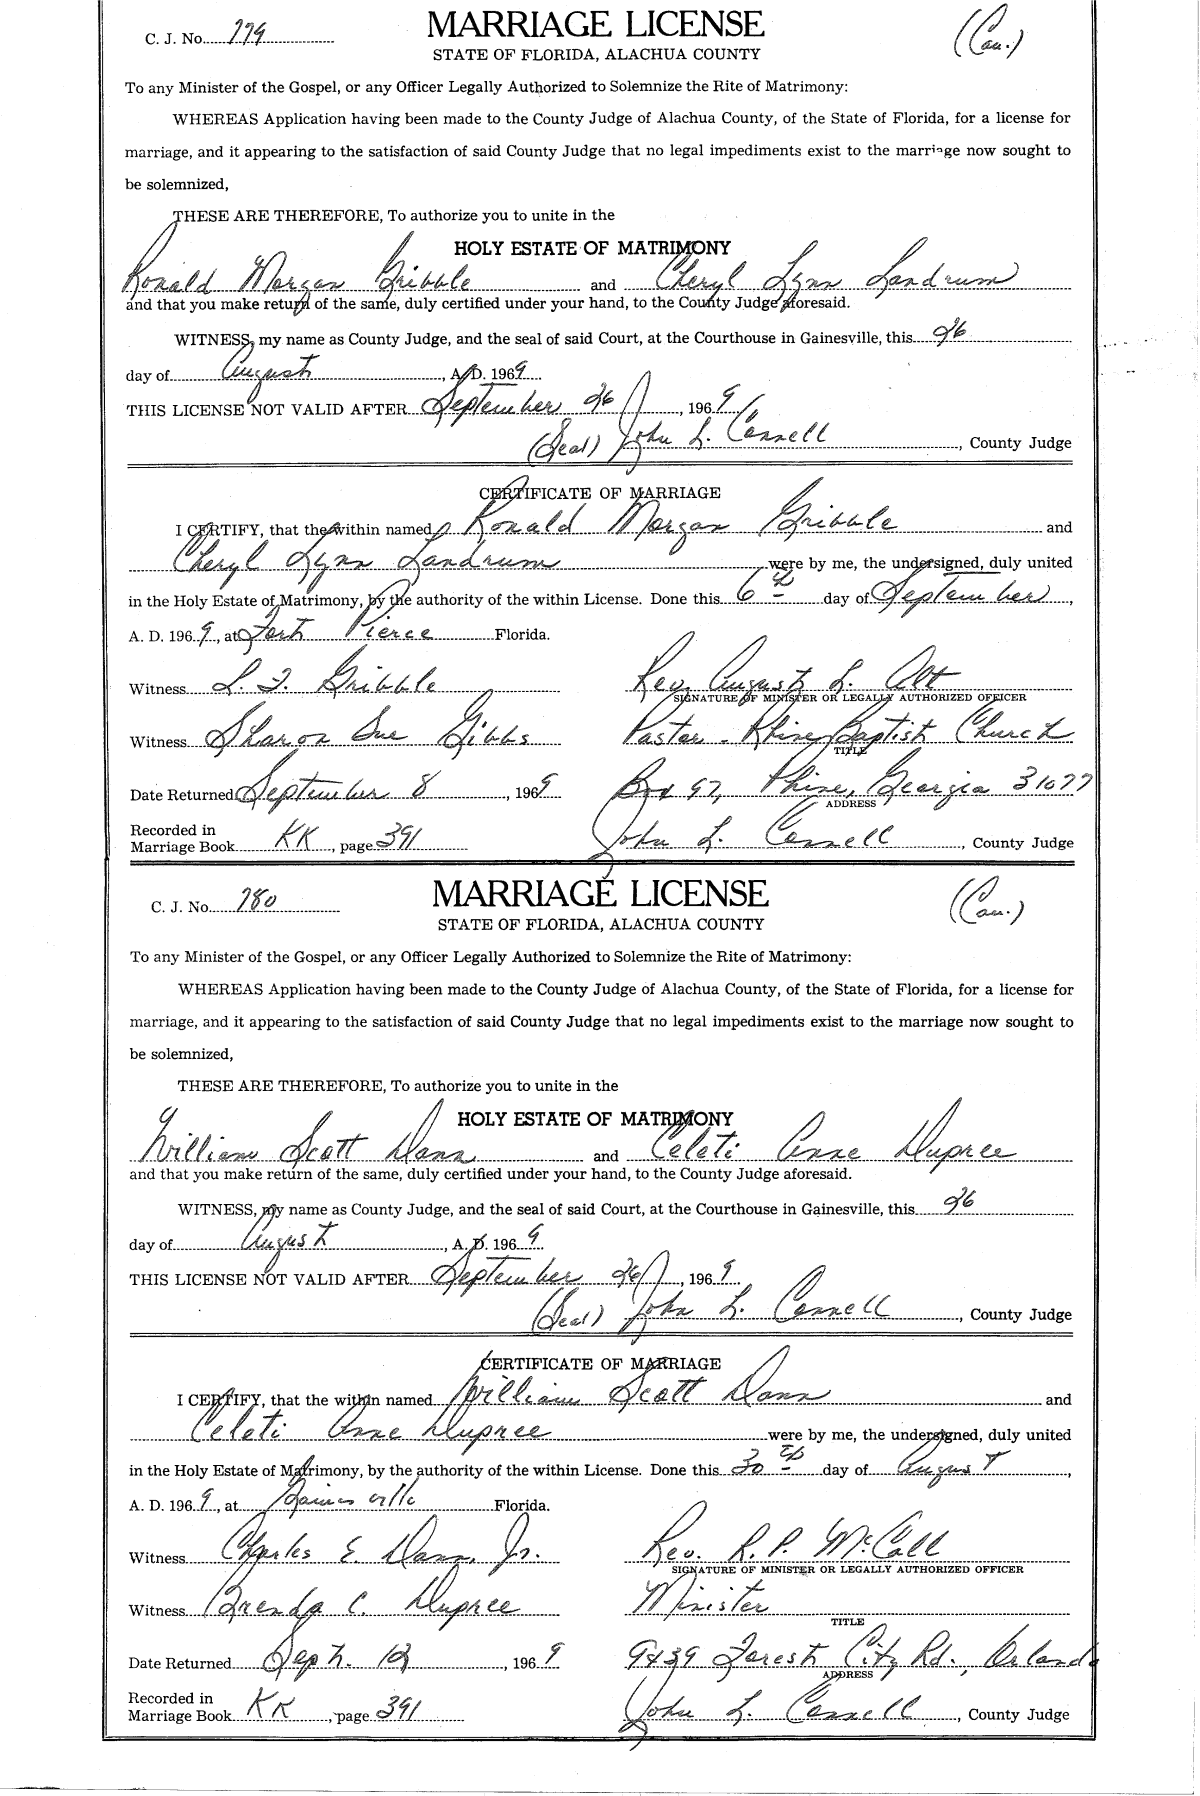 C. J. No. 779 MARRIAGE LICENSE (Cau.)
STATE OF FLORIDA, ALACHUA COUNTY
To any Minister of the Gospel, or any Officer Legally Authorized to Solemnize the Rite of Matrimony:
WHEREAS Application having been made to the County Judge of Alachua County, of the State of Florida, for a license for
marriage, and it appearing to the satisfaction of said County Judge that no legal impediments exist to the marriage now sought to
be solemnized,
THESE ARE THEREFORE, To authorize you to unite in the
HOLY ESTATE OF MATRIMONY
Ronald Morgan Gribble and Cheryl Lynn Landrum
and that you make return of the same, duly certified under your hand, to the County Judge aforesaid.
WITNESS, my name as County Judge, and the seal of said Court, at the Courthouse in Gainesville, this 26
day of August, A. D. 1969
THIS LICENSE NOT VALID AFTER September 26, 1969
(Seal) John L. Connell, County Judge
CERTIFICATE OF MARRIAGE
I CERTIFY, that the within named Ronald Morgan Gribble and
Cheryl Lynn Landrum were by me, the undersigned, duly united
in the Holy Estate of Matrimony, by the authority of the within License. Done this 6th day of September,
A. D. 1969, at Fort Pierce Florida.
Witness L. F. Gribble Rev. August L. Alt
SIGNATURE OF MINISTER OR LEGALLY AUTHORIZED OFFICER
Witness Sharon Sue Gibbs Pastor - Rhine Baptist Church
TITLE
Date Returned September 8, 1969 Box 97, Rhine, Georgia 31077
ADDRESS
Recorded in
Marriage Book KK, page 391 John L. Connell, County Judge
C. J. No. 780 MARRIAGE LICENSE (Cau.)
STATE OF FLORIDA, ALACHUA COUNTY
To any Minister of the Gospel, or any Officer Legally Authorized to Solemnize the Rite of Matrimony:
WHEREAS Application having been made to the County Judge of Alachua County, of the State of Florida, for a license for
marriage, and it appearing to the satisfaction of said County Judge that no legal impediments exist to the marriage now sought to
be solemnized,
THESE ARE THEREFORE, To authorize you to unite in the
HOLY ESTATE OF MATRIMONY
William Scott Dann and Celeti Anne Dupree
and that you make return of the same, duly certified under your hand, to the County Judge aforesaid.
WITNESS, my name as County Judge, and the seal of said Court, at the Courthouse in Gainesville, this 26
day of August, A. D. 1969
THIS LICENSE NOT VALID AFTER September 26, 1969
(Seal) John L. Connell, County Judge
CERTIFICATE OF MARRIAGE
I CERTIFY, that the within named William Scott Dann and
Celeti Anne Dupree were by me, the undersigned, duly united
in the Holy Estate of Matrimony, by the authority of the within License. Done this 30th day of August,
A. D. 1969, at Gainesville Florida.
Witness Charles E. Dann, Jr. Rev. R. P. McCall
SIGNATURE OF MINISTER OR LEGALLY AUTHORIZED OFFICER
Witness Brenda C. Dupree Minister
TITLE
Date Returned Sept. 12, 1969 9439 Forest City Rd., Orlando
ADDRESS
Recorded in
Marriage Book KK, page 391 John L. Connell, County Judge